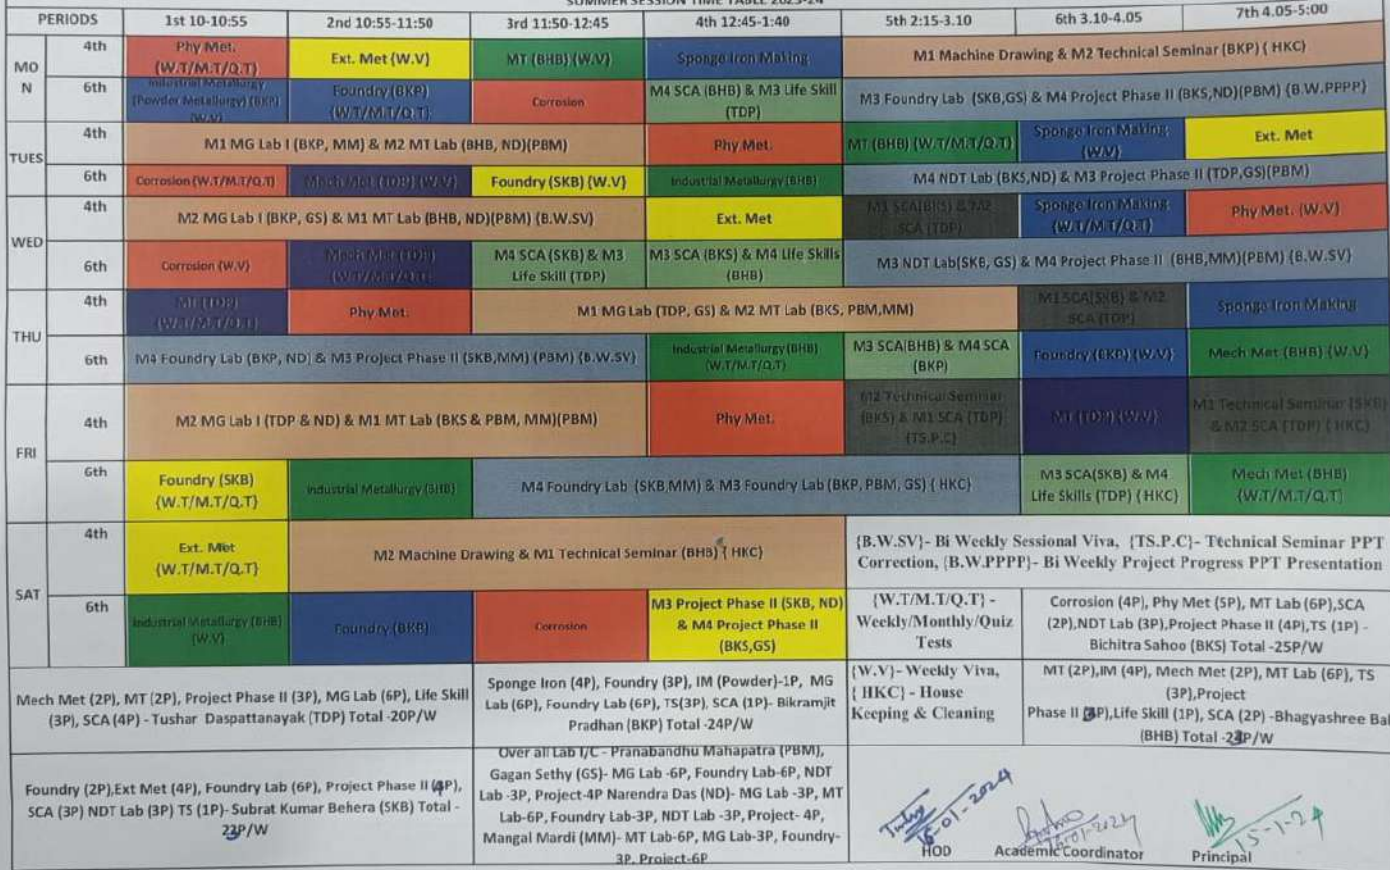 SUMMER SESSION TIME TABLE 2023-24
PERIODS 1st 10-10:55 2nd 10:55-11:50 3rd 11:50-12:45 4th 12:45-1:40 5th 2:15-3.10 6th 3.10-4.05 7th 4.05-5:00
MO
N
4th
Phy Met.
{W.T/M.T/Q.T}
Ext. Met {W.V}
MT (BHB) {W.V}
Sponge Iron Making
M1 Machine Drawing & M2 Technical Seminar (BKP) { HKC}
6th
Industrial Metallurgy
(Powder Metallurgy) (BKP)
{W.V}
Foundry (BKP)
{W.T/M.T/Q.T}
Corrosion
M4 SCA (BHB) & M3 Life Skill
(TDP)
M3 Foundry Lab (SKB,GS) & M4 Project Phase II (BKS,ND)(PBM) {B.W.PPPP}
TUES
4th
M1 MG Lab I (BKP, MM) & M2 MT Lab (BHB, ND)(PBM)
Phy Met.
MT (BHB) {W.T/M.T/Q.T}
Sponge Iron Making
{W.V}
Ext. Met
6th
Corrosion {W.T/M.T/Q.T}
Mech Met (TDP) {W.V}
Foundry (SKB) {W.V}
Industrial Metallurgy (BHB)
M4 NDT Lab (BKS,ND) & M3 Project Phase II (TDP,GS)(PBM)
WED
4th
M2 MG Lab I (BKP, GS) & M1 MT Lab (BHB, ND)(PBM) {B.W.SV}
Ext. Met
M1 SCA(BKS) & M2
SCA (TDP)
Sponge Iron Making
{W.T/M.T/Q.T}
Phy Met. {W.V}
6th
Corrosion {W.V}
Mech Met (TDP)
{W.T/M.T/Q.T}
M4 SCA (SKB) & M3
Life Skill (TDP)
M3 SCA (BKS) & M4 Life Skills
(BHB)
M3 NDT Lab(SKB, GS) & M4 Project Phase II (BHB,MM)(PBM) {B.W.SV}
THU
4th
MT (TDP)
{W.T/M.T/Q.T}
Phy Met.
M1 MG Lab (TDP, GS) & M2 MT Lab (BKS, PBM,MM)
M1 SCA(SKB) & M2
SCA (TDP)
Sponge Iron Making
6th
M4 Foundry Lab (BKP, ND) & M3 Project Phase II (SKB,MM) (PBM) {B.W.SV}
Industrial Metallurgy (BHB)
{W.T/M.T/Q.T}
M3 SCA(BHB) & M4 SCA
(BKP)
Foundry (BKP) {W.V}
Mech Met (BHB) {W.V}
FRI
4th
M2 MG Lab I (TDP & ND) & M1 MT Lab (BKS & PBM, MM)(PBM)
Phy Met.
Technical Seminar
(BKS) & M1 SCA (TDP)
{TS.P.C}
MT (TDP) {W.V}
M1 Technical Seminar (SKB)
& M2 SCA (TDP) { HKC}
6th
Foundry (SKB)
{W.T/M.T/Q.T}
Industrial Metallurgy (BHB)
M4 Foundry Lab (SKB,MM) & M3 Foundry Lab (BKP, PBM, GS) { HKC}
M3 SCA(SKB) & M4
Life Skills (TDP) { HKC}
Mech Met (BHB)
{W.T/M.T/Q.T}
SAT
4th
Ext. Met
{W.T/M.T/Q.T}
M2 Machine Drawing & M1 Technical Seminar (BHB) { HKC}
{B.W.SV}- Bi Weekly Sessional Viva, {TS.P.C}- Technical Seminar PPT
Correction, {B.W.PPPP}- Bi Weekly Project Progress PPT Presentation
6th
Industrial Metallurgy (BHB)
{W.V}
Foundry (BKP)
Corrosion
M3 Project Phase II (SKB, ND)
& M4 Project Phase II
(BKS,GS)
{W.T/M.T/Q.T} -
Weekly/Monthly/Quiz
Tests
Corrosion (4P), Phy Met (5P), MT Lab (6P),SCA
(2P),NDT Lab (3P),Project Phase II (4P),TS (1P) -
Bichitra Sahoo (BKS) Total -25P/W
Mech Met (2P), MT (2P), Project Phase II (3P), MG Lab (6P), Life Skill
(3P), SCA (4P) - Tushar Daspattanayak (TDP) Total -20P/W
Sponge Iron (4P), Foundry (3P), IM (Powder)-1P, MG
Lab (6P), Foundry Lab (6P), TS(3P), SCA (1P)- Bikramjit
Pradhan (BKP) Total -24P/W
{W.V}- Weekly Viva,
{ HKC} - House
Keeping & Cleaning
MT (2P),IM (4P), Mech Met (2P), MT Lab (6P), TS
(3P),Project
Phase II (3P),Life Skill (1P), SCA (2P) -Bhagyashree Bal
(BHB) Total -23P/W
Foundry (2P),Ext Met (4P), Foundry Lab (6P), Project Phase II (4P),
SCA (3P) NDT Lab (3P) TS (1P)- Subrat Kumar Behera (SKB) Total -
23P/W
Over all Lab I/C - Pranabandhu Mahapatra (PBM),
Gagan Sethy (GS)- MG Lab -6P, Foundry Lab-6P, NDT
Lab -3P, Project-4P Narendra Das (ND)- MG Lab -3P, MT
Lab-6P, Foundry Lab-3P, NDT Lab -3P, Project- 4P,
Mangal Mardi (MM)- MT Lab-6P, MG Lab-3P, Foundry-
3P, Project-6P
15-01-2024
HOD
Academic Coordinator
15-1-24
Principal